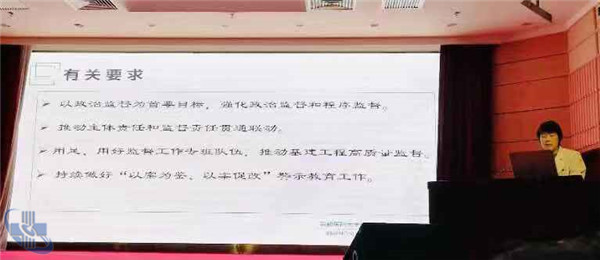 有关要求
➤ 以政治监督为首要目标，强化政治监督和程序监督。
➤ 推动主体责任和监督责任贯通联动。
➤ 用足、用好监督工作专班队伍，推动基建工程高质量监督。
➤ 持续做好“以案为鉴、以案促改”警示教育工作。